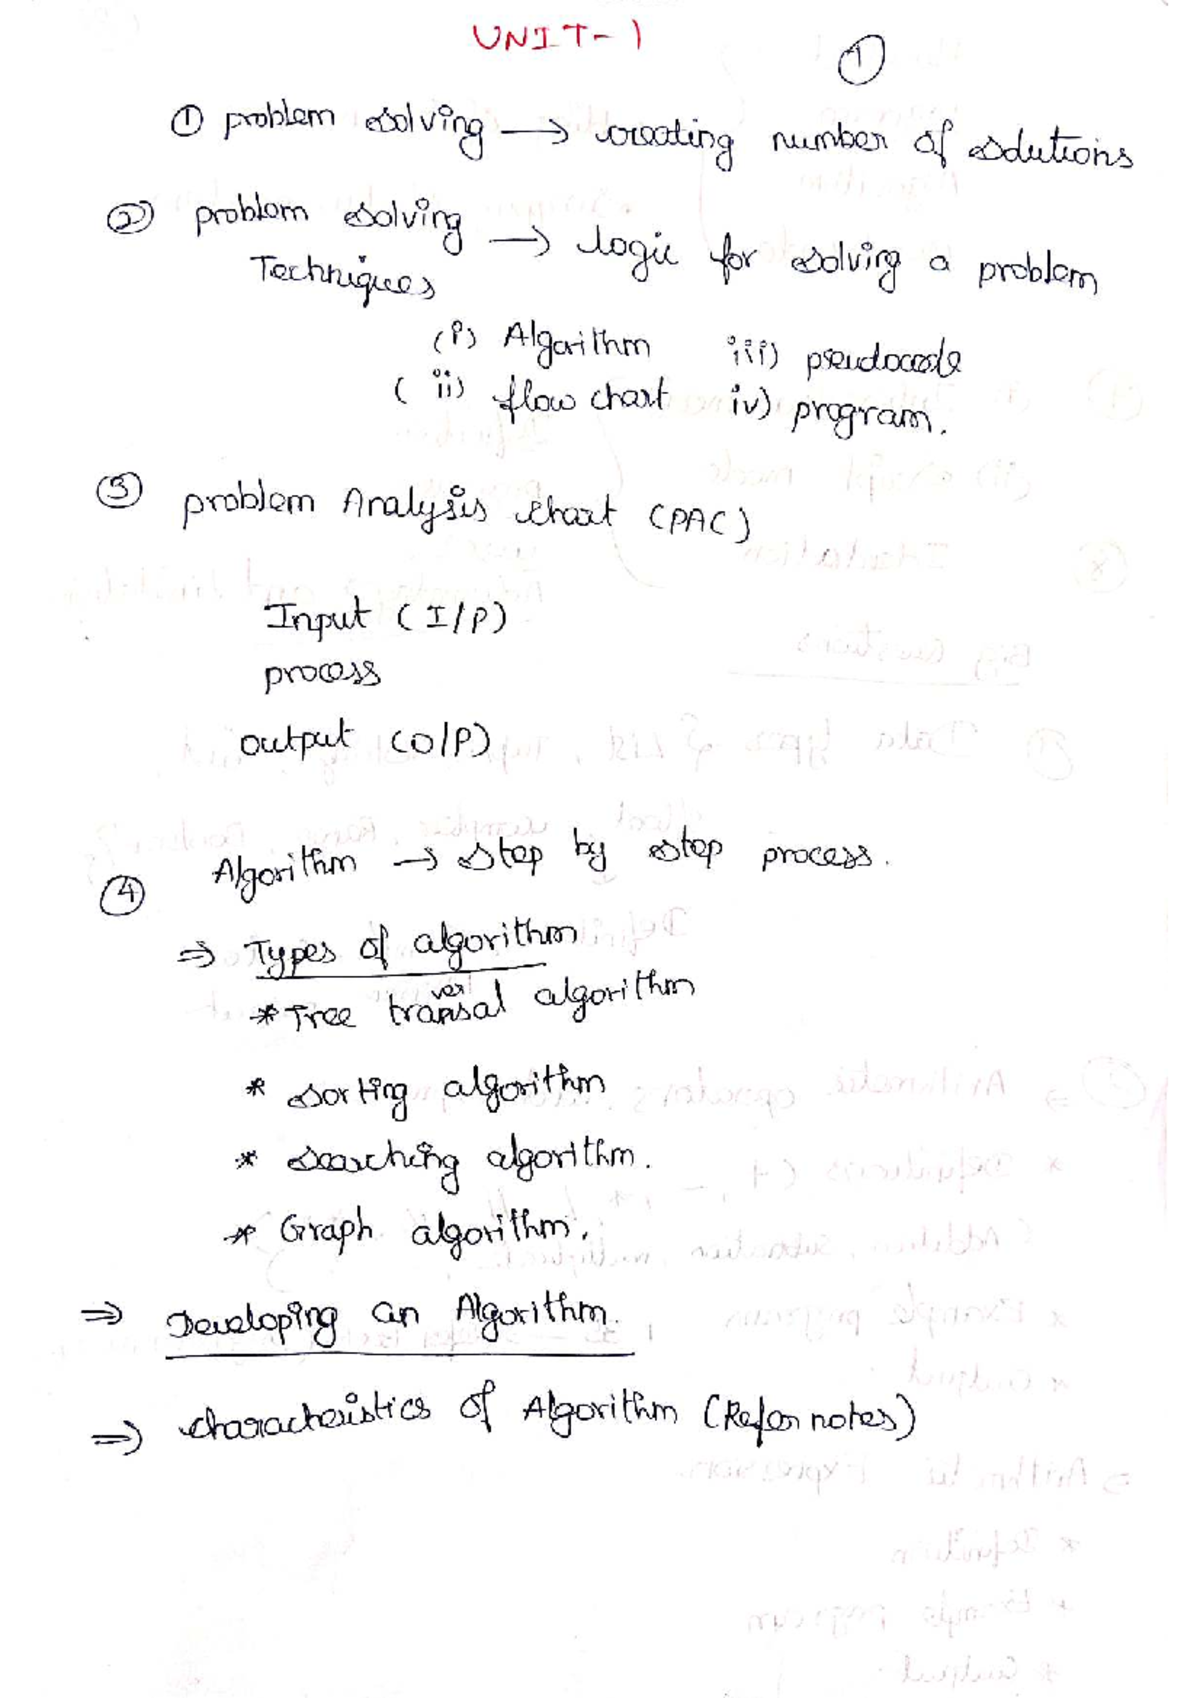 UNIT-1
①
① problem solving → creating number of solutions
② problem solving → logic for solving a problem
Techniques
(i) Algorithm iii) pseudocode
( ii) flow chart iv) program.
③ problem Analysis chart (PAC)
Input (I/P)
process
output (O/P)
④ Algorithm → step by step process.
⇒ Types of algorithm
ver
* Tree transal algorithm
* sorting algorithm
* searching algorithm.
* Graph algorithm.
⇒ Developing an Algorithm.
⇒ characteristics of Algorithm (Refer notes)